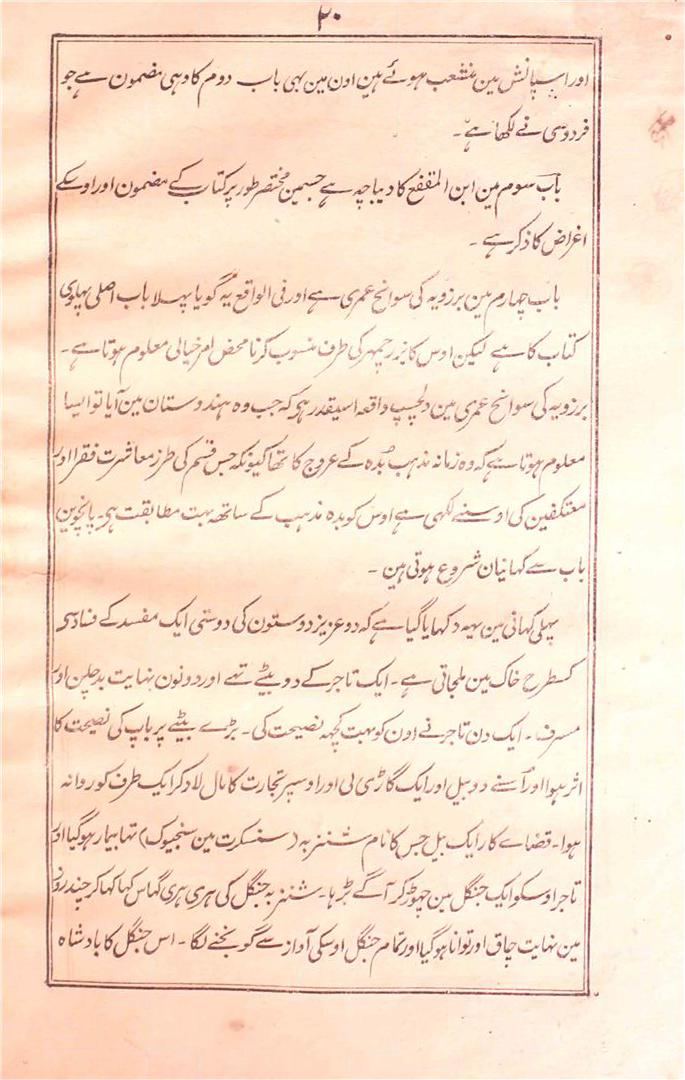 ۲۰
اور اسپانش مین منشعب ہوئے ہین اون مین بہی باب دوم کا وہی مضمون ہے جو
فردوسی نے لکھا ہے ۔
باب سوم مین ابن المقفع کا دیباچہ ہے جسمین مختصر طور پر کتاب کے مضمون اور اوسکے
اغراض کا ذکر ہے ۔
باب چہارم مین برزویہ کی سوانح عمری ہے اور فی الواقع یہ گویا پہلا باب اصلی پہلوی
کتاب کا ہے لیکن اوس کا بزرجمہر کی طرف منسوب کرنا محض امر خیالی معلوم ہوتا ہے ۔
برزویہ کی سوانح عمری مین دلچسپ واقعہ اسیقدر ہی کہ جب وہ ہندوستان مین آیا تو ایسا
معلوم ہوتا ہے کہ وہ زمانہ مذہب بدہ کے عروج کا تھا کیونکہ جس قسم کی طرز معاشرت فقرا اور
معتکفین کی اوسنے لکھی ہے اوس کو بدہ مذہب کے ساتھہ بہت مطابقت ہی ۔ پانچوین
باب سے کہانیان شروع ہوتی ہین ۔
پہلی کہانی مین یہہ دکہایا گیا ہے کہ دو عزیز دوستون کی دوستی ایک مفسد کے فساد سی
کسطرح خاک مین ملجاتی ہے ۔ ایک تاجر کے دو بیٹے تہے اور دونون نہایت بدچلن اور
مسرف ۔ ایک دن تاجر نے اون کو بہت کچہہ نصیحت کی ۔ بڑے بیٹے پر باپ کی نصیحت کا
اثر ہوا اور اُسنے دو بیل اور ایک گاڑی لی اور اوسپر تجارت کا مال لاد کر ایک طرف کو روانہ
ہوا ۔ قضاے کار ایک بیل جس کا نام شنزبہ (سنسکرت مین سنجیوک) تہا بیمار ہوگیا اور
تاجر اوسکو ایک جنگل مین چھوڑ کر آگے بڑہا ۔ شنزبہ جنگل کی ہری ہری گہاس کہا کہا کر چند روز
مین نہایت چاق اور توانا ہوگیا اور تمام جنگل اوسکی آواز سے گونجنے لگا ۔ اس جنگل کا بادشاہ